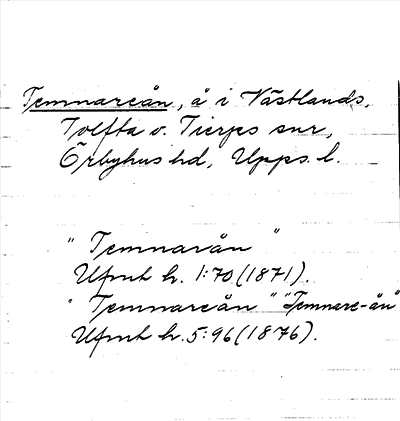 Temnareån, å i Västlands,
Tolfta o. Tierps snr,
Örbyhus hd, Upps. l.
"Temnarån"
Ufmt h. 1:70 (1871).
"Temnareån" "Temnare-ån"
Ufmt h. 5:96 (1876).